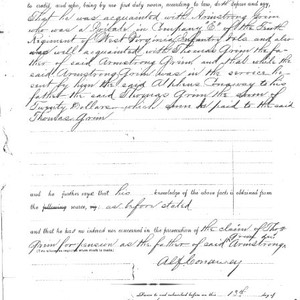 to credit, and who, being by me first duly sworn, according to law, doth depose and say,
That he was acquainted with Armstrong Goin
who was a private in Company "E" of the Tenth
Regiment of West Virginia Infantry vols and also
was well acquainted with Thomas Goin the fa-
ther of said Armstrong Goin and that while the
said Armstrong Goin was in the service he
sent by him the said Alpheus Conaway to his
father the said Thomas Goin the sum of
Twenty Dollars which sum he paid to the said
Thomas Goin
and he further says that his knowledge of the above facts is obtained from
the following source, viz; as before stated
and that he is not indeed nor concerned in the prosecution of the claim of Thos
Goin for pension as the father of said Armstrong
Alf Conaway
Sworn to and subscribed before me this 13th day of